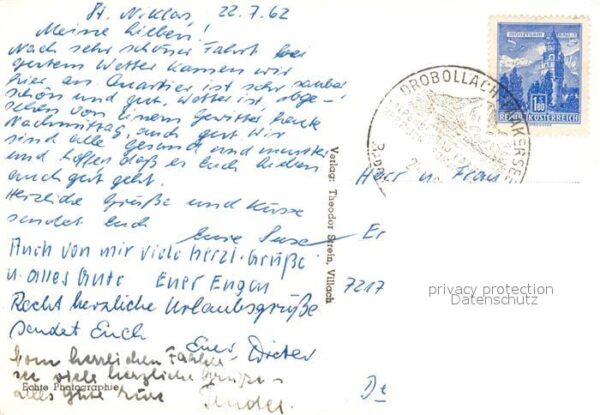 St. Niklas, 22.7.62
Meine Lieben!
Nach sehr schöner Fahrt bei
gutem Wetter kamen wir
hier an. Quartier ist sehr sauber
schön und gut. Wetter ist, abge-
sehen von einem Gewitter heute
Nachmittag, auch gut. Wir
sind alle gesund und munter
und hoffen daß es Euch Lieben
auch gut geht.
Herzliche Grüße und Küsse
sendet Euch
Eure
Auch von mir viele herzl. Grüße
u. alles Gute Euer Eugen
Recht herzliche Urlaubsgrüße
sendet Euch
Euer Dieter
Vom herrlichen Faaker-
see viele herzliche Grüße
alles Gute
Echte Photographie
Verlag: Theodor Strein, Villach
REPUBLIK ÖSTERREICH
DROBOLLACH
Herr u. Frau
Er
7217
De
privacy protection
Datenschutz